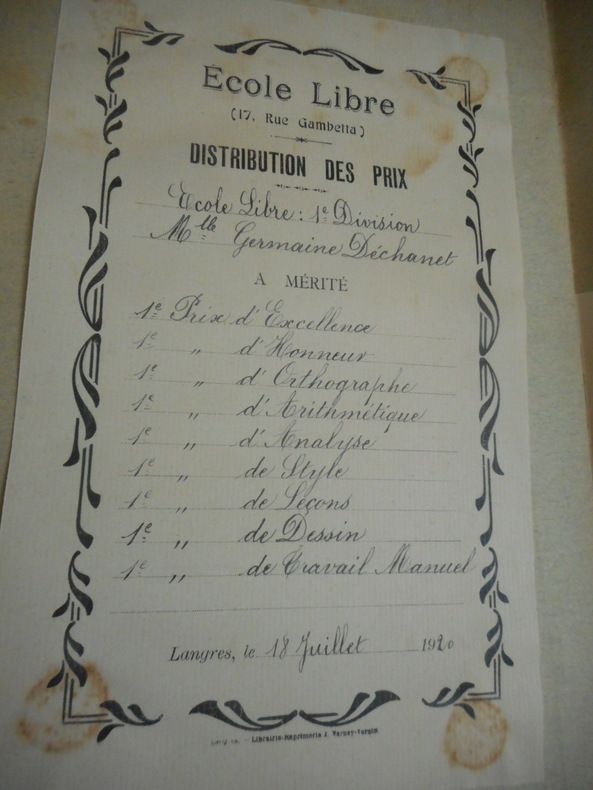 École Libre
(17, Rue Gambetta)
DISTRIBUTION DES PRIX
École Libre : 1e Division
Mlle Germaine Déchanet
A MÉRITÉ
1e Prix d'Excellence
1e „ d'Honneur
1e „ d'Orthographe
1e „ d'Arithmétique
1e „ d'Analyse
1e „ de Style
1e „ de Leçons
1e „ de Dessin
1e „ de Travail Manuel
Langres, le 18 Juillet 1920
Librairie-Imprimerie J.